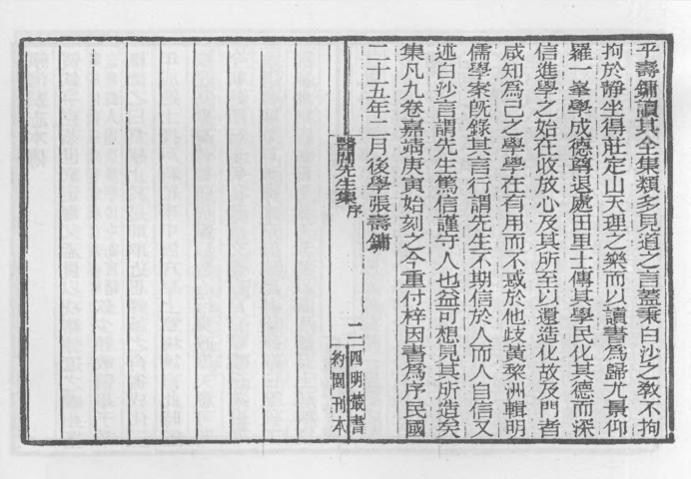 平壽鏞讀其全集類多見道之言蓋秉白沙之教不拘
拘於靜坐得莊定山天理之樂而以讀書為歸尤景仰
羅一峯學成德尊退處田里士傳其學民化其德而深
信進學之始在收放心及其所至以還造化故及門者
咸知為己之學學在有用而不惑於他歧黃黎洲輯明
儒學案既錄其言行謂先生不期信於人而人自信又
述白沙言謂先生篤信謹守人也益可想見其所造矣
集凡九卷嘉靖庚寅始刻之今重付梓因書為序民國
二十五年二月後學張壽鏞
醫閭先生集
序
二
四明叢書
約園刊本